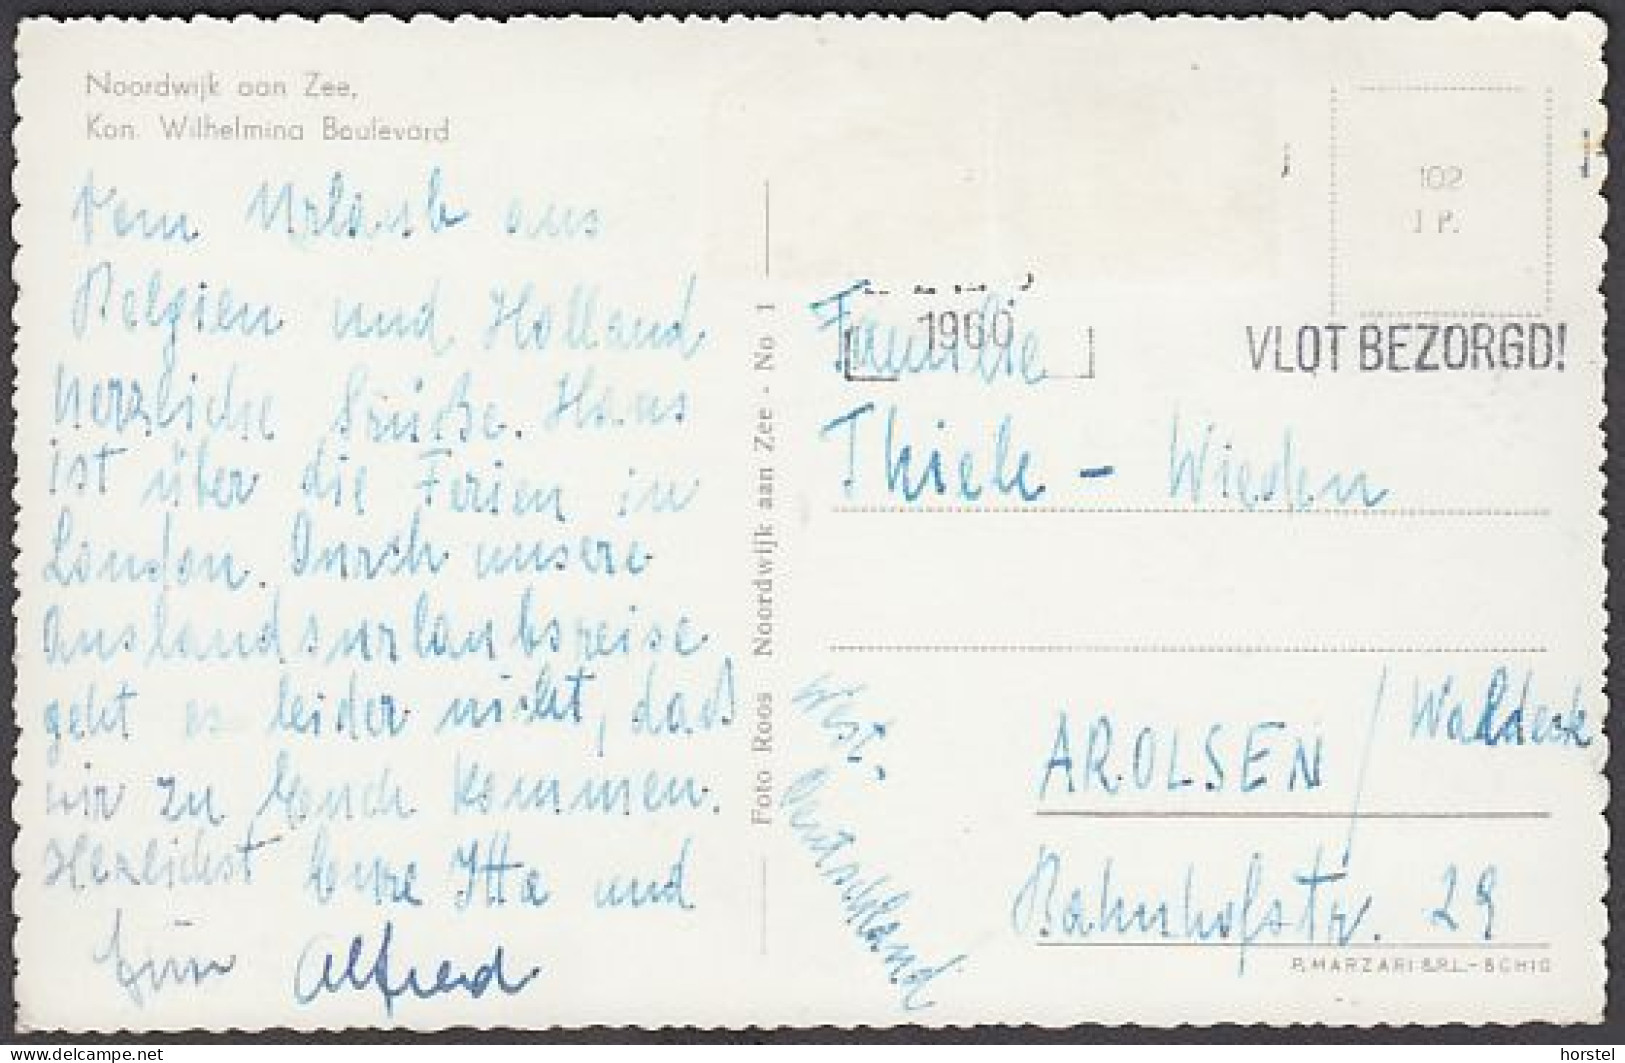 Noordwijk aan Zee,
Kon. Wilhelmina Boulevard
Vom Urlaub aus
Belgien und Holland
herzliche Grüße. Hans
ist über die Ferien in
London. Durch unsere
Auslandsurlaubsreise
geht es leider nicht, daß
wir zu Euch kommen.
Herzlichst Eure Itta und
Euer Alfred
Foto Roos Noordwijk aan Zee - No 1
102
I P.
1960
VLOT BEZORGD!
Familie
Thiele - Wieden
West-
Deutschland
AROLSEN / Waldeck
Bahnhofstr. 29
P. MARZARI S.R.L. - SCHIO
horstel